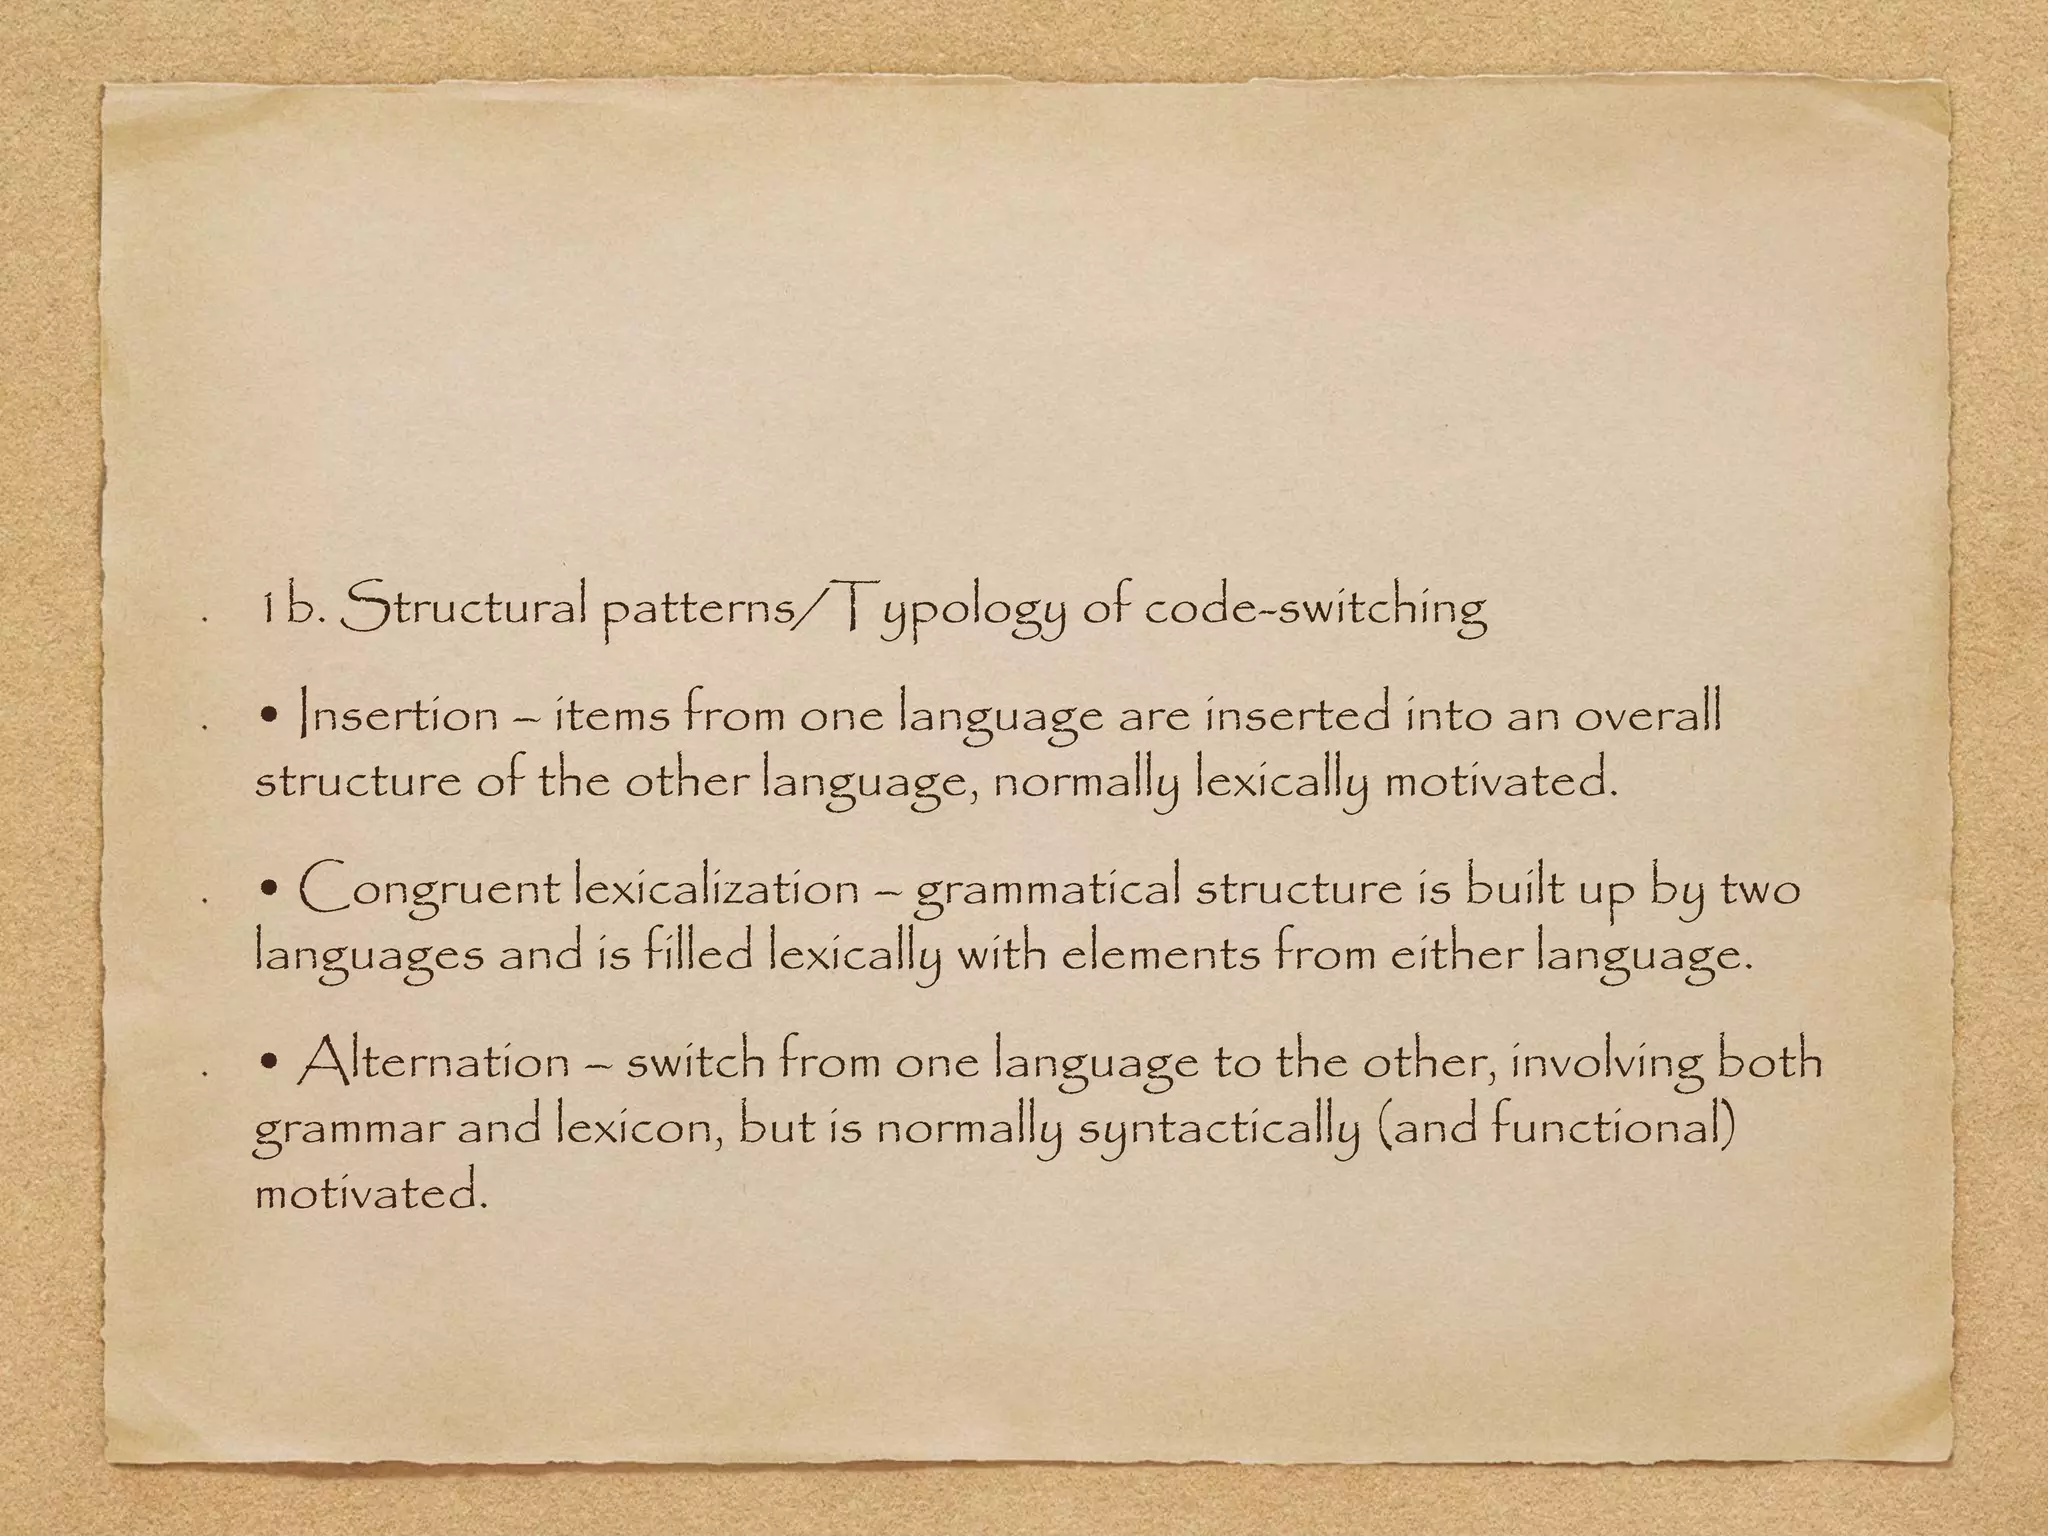 . 1b. Structural patterns/Typology of code-switching
. • Insertion – items from one language are inserted into an overall
structure of the other language, normally lexically motivated.
. • Congruent lexicalization – grammatical structure is built up by two
languages and is filled lexically with elements from either language.
. • Alternation – switch from one language to the other, involving both
grammar and lexicon, but is normally syntactically (and functional)
motivated.